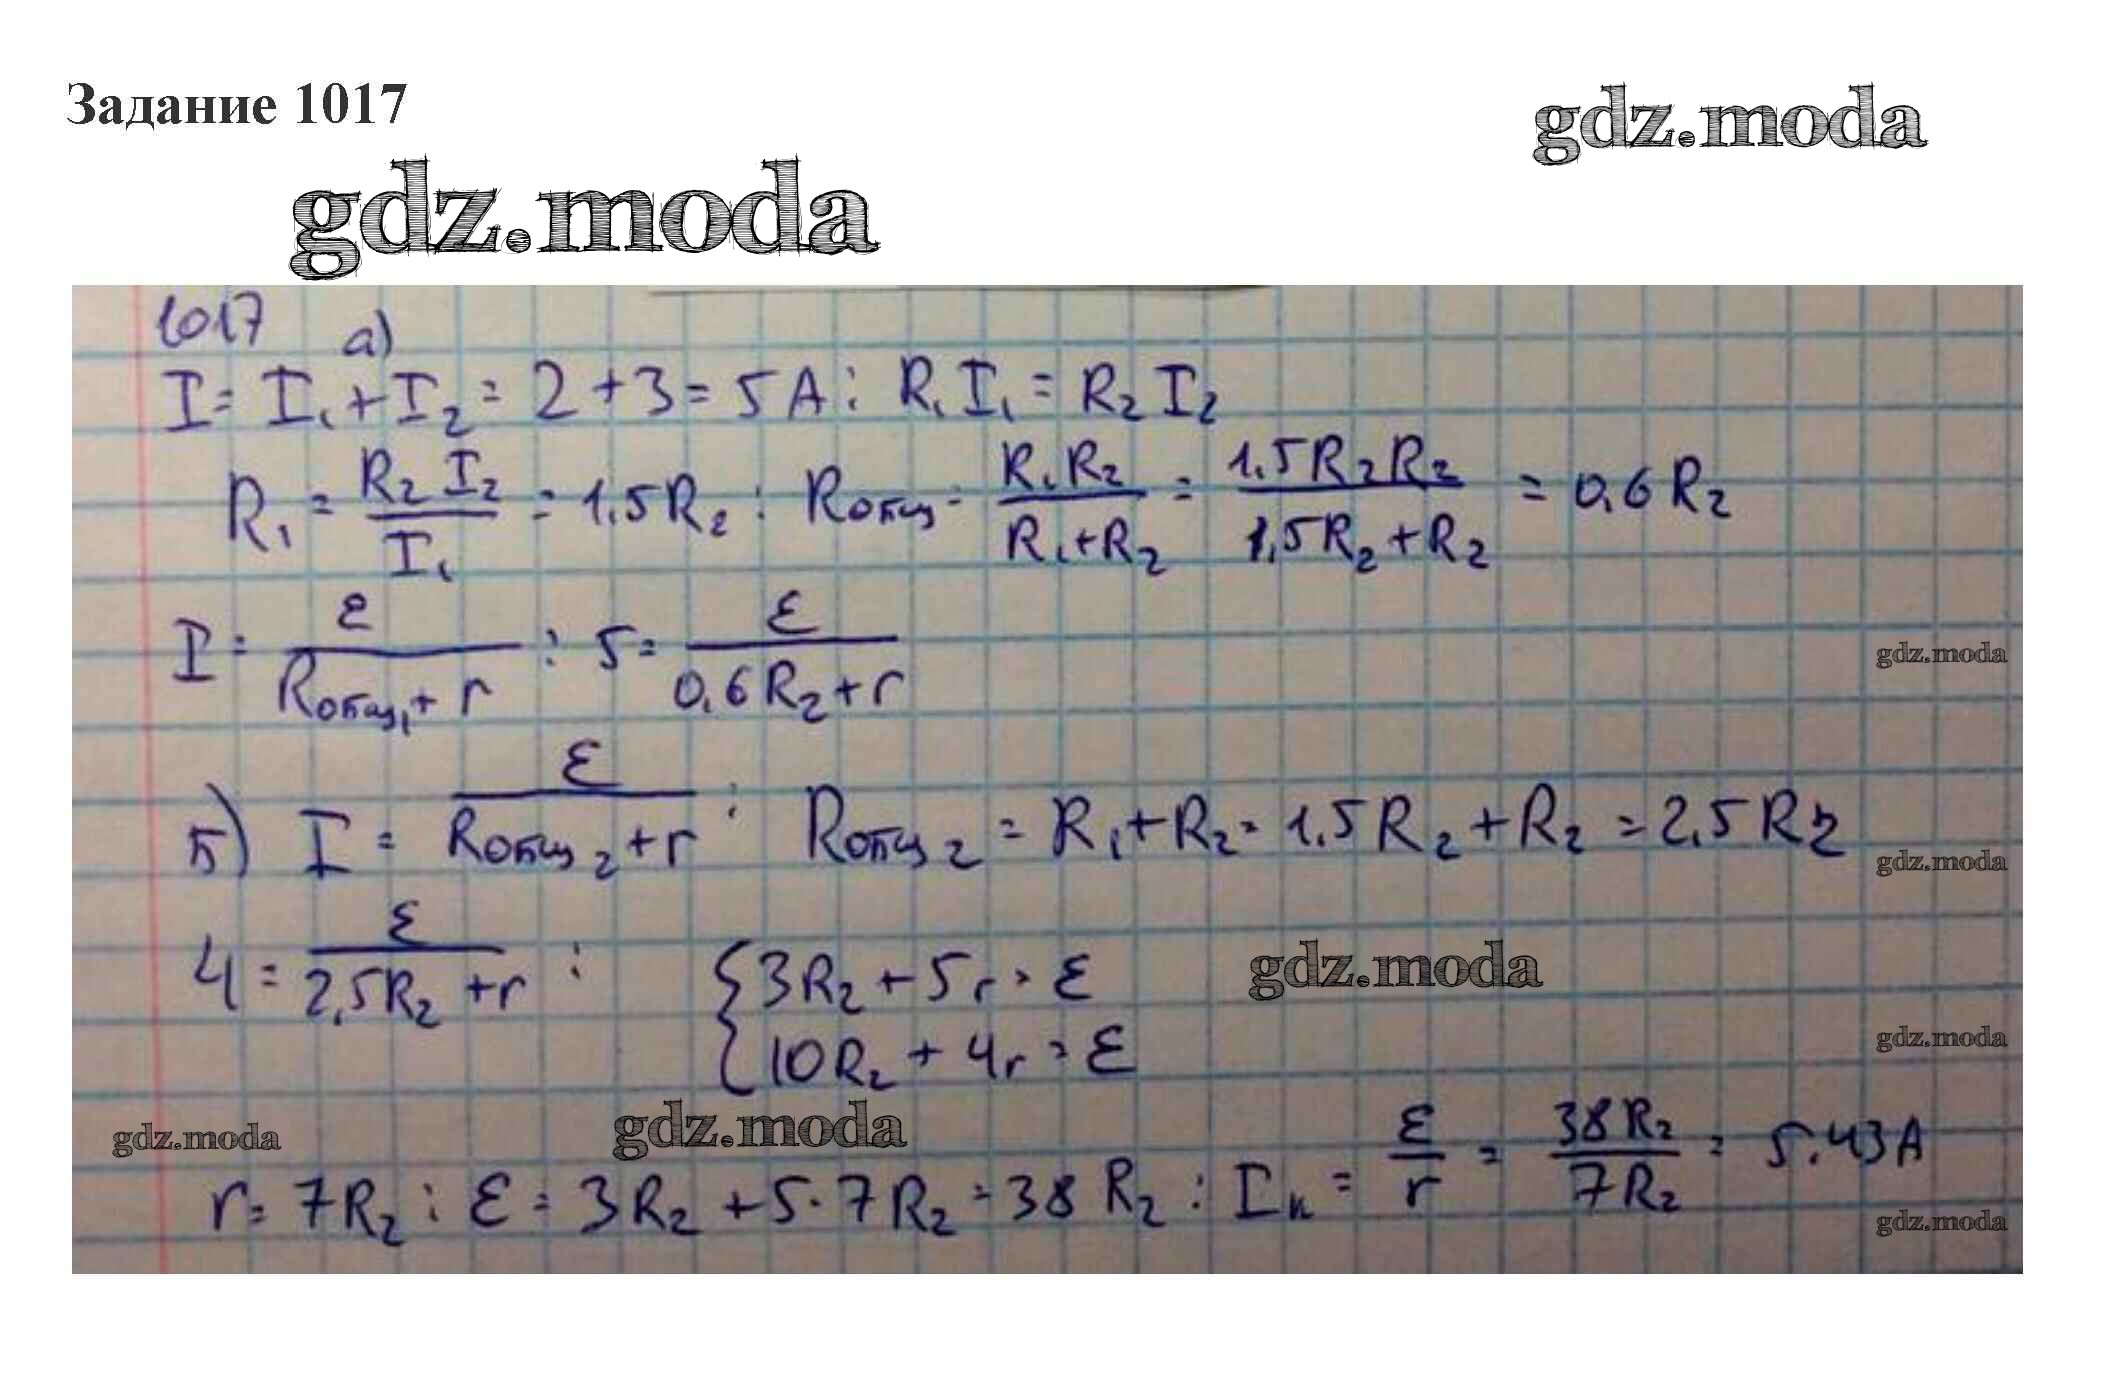 Задание 1017
gdz.moda
gdz.moda
1017 а)
I = I₁ + I₂ = 2 + 3 = 5 А ; R₁I₁ = R₂I₂
R₁ = R₂I₂ / I₁ = 1,5R₂ ; Rобщ = R₁R₂ / (R₁+R₂) = 1,5R₂R₂ / (1,5R₂+R₂) = 0,6R₂
I = ε / (Rобщ₁ + r) ; 5 = ε / (0,6R₂+r)
gdz.moda
б) I = ε / (Rобщ₂ + r) ; Rобщ₂ = R₁+R₂ = 1,5R₂+R₂ = 2,5R₂
gdz.moda
4 = ε / (2,5R₂ + r) ; { 3R₂ + 5r = ε
10R₂ + 4r = ε
gdz.moda
gdz.moda
gdz.moda
gdz.moda
r = 7R₂ ; ε = 3R₂ + 5·7R₂ = 38R₂ ; Iк = ε / r = 38R₂ / 7R₂ = 5,43А
gdz.moda